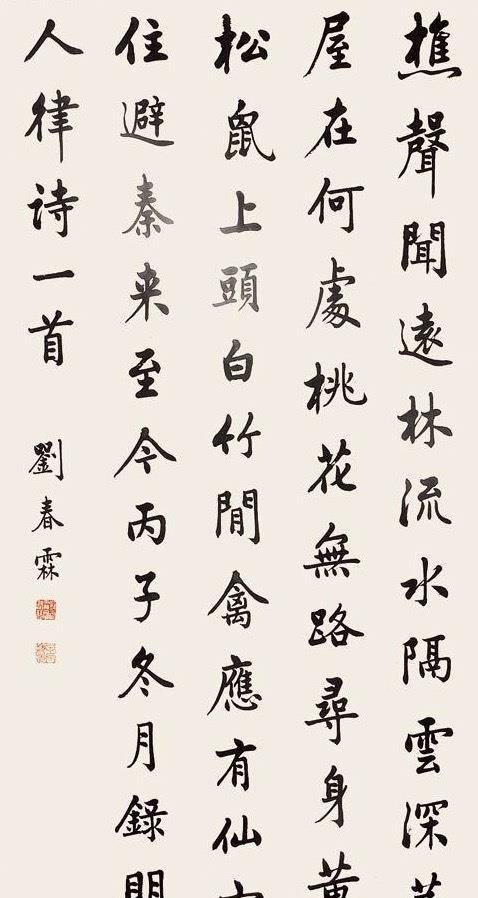 樵聲聞遠林流水隔雲深茅
屋在何處桃花無路尋身黄
松鼠上頭白竹間禽應有仙
住避秦来至今丙子冬月錄
人律诗一首
劉春霖